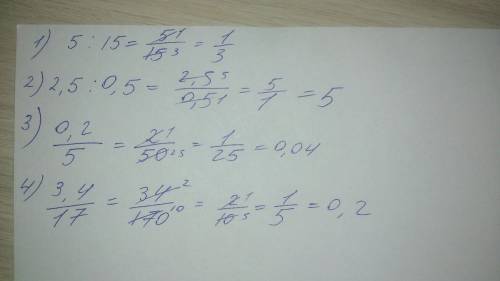 1) 5 : 15 = 5̶¹/1̶5̶³ = 1/3
2) 2,5 : 0,5 = 2̶,̶5̶⁵/0̶,̶5̶¹ = 5/1 = 5
3) 0,2/5 = 2̶¹/5̶0̶²⁵ = 1/25 = 0,04
4) 3,4/17 = 3̶4̶²/1̶7̶0̶¹⁰ = 2̶¹/1̶0̶⁵ = 1/5 = 0,2